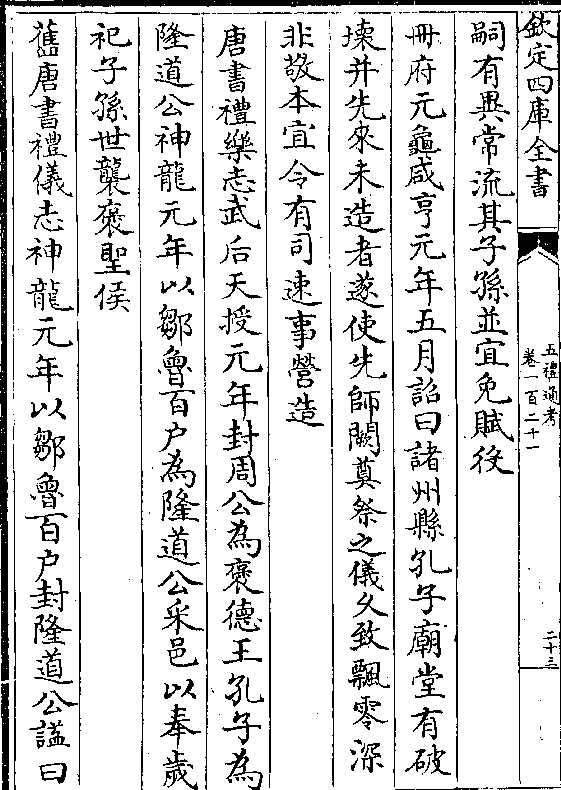 欽定四庫全書
五禮通考
卷一百二十一
二十三
嗣有異常流其子孫並宜免賦役
冊府元龜咸亨元年五月詔曰諸州縣孔子廟堂有破
壊并先來未造者遂使先師闕奠祭之儀久致飄零深
非敬本宜令有司速事營造
唐書禮樂志武后天授元年封周公為褒德王孔子為
隆道公神龍元年以鄒魯百户為隆道公采邑以奉歲
祀子孫世襲褒聖侯
舊唐書禮儀志神龍元年以鄒魯百户封隆道公諡曰